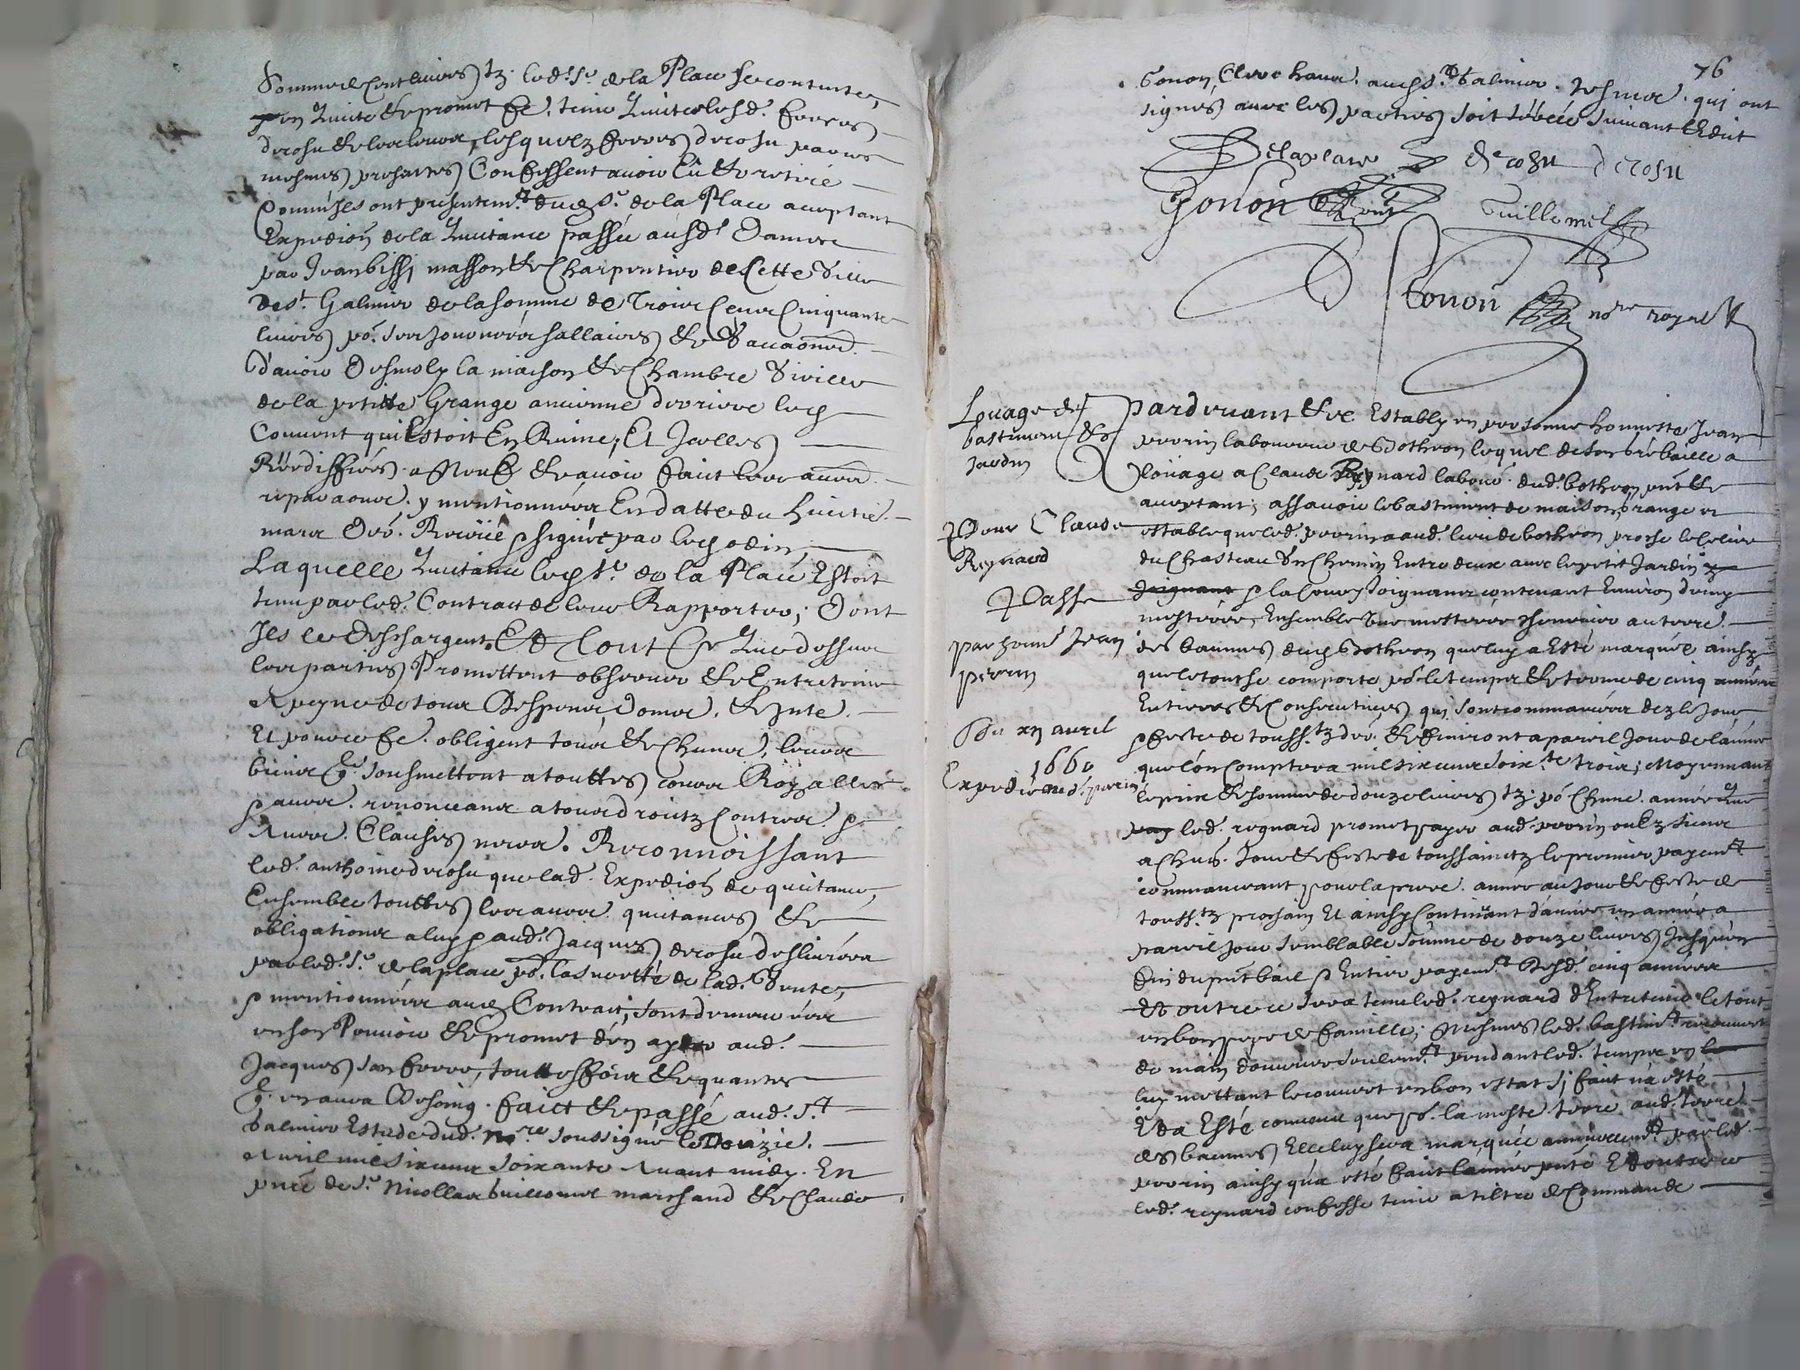 Somme de Cent livres tz. led. sr. de la Place se contente,
en quitte & promet fe. tenir quitte lesd. freres
derosu & les leurs, lesquelz freres derosu parties
mesmes presentes Confessent avoir Eu & retiré
Comm'Ils ont presentemt. dud. Sr. de la Place acceptant
Expedion de la Quittance passée ausd.
par Jean bissi masson & Charpentier de Cette Ville
de St. Galmier de la somme de Trois Cens Cinquante
livres po. ses Journées sallaires & Vacaons.
d'avoir Desmoly la maison & Chambre
de la petitte Grange ancienne derriere led.
Couvent qui Estoit En Ruine, Et Icelles
Rëediffiées a Neuf & avoir faict les autres
reparaons. y mentionnées En datte du huictie.
mars der. Receüe & signée par led. odin,
Laquelle Quittance led. Sr. de la Place Estoit
tenu par led. Contract de leur Rapporter; Dont
Ils le Deschargent. Et Tout Ce que dessus
les parties Promettent observer & Entretenir
A peyne de tous Despens, Doma. & Inte.
Et pour ce fe. obligent tous & Chuns. leurs
biens que Soubmettent a touttes cours Royalles
& autres. renonceans a tous droictz Contres. &
Avec Clauses neces. Recconnoissant
led. anthoine derosu que lad. Expedion de quittance,
Ensemble touttes les autres quittances &
obligations a luy & aud. Jacques derosu deslivrées
par led. Sr. de la place po. la seurtté de lad. Vente,
& mentionnées aud. Contract, sont demeurées
en son Pouvoir & promet d'en ayder aud.
Jacques son frere, touttesfois & quantes
qu'en aura Besoing. faict & passé aud. St.
Galmier Estude dud. Nore. soussigné le Douzie.
Avril mil six cens soixante Avant midy. En
pnce de Sr. Nicollas Guillomet marchand & Claude
76
Gonon Clerc habit. aud. St. Galmier. tesmoins. qui ont
signé avec les parties soit seëlé suivant l'Edict
Delaplace derosu derosu
Gonon Guillomet
Gonon nore royal
Louage de
bastiment &
Jardin
Pour Claude
Reynard
Passé
par honn. Jean
perrin
Du xij avril
1660
Expedié aud. perrin
Pardevant & Estably en personne honneste Jean
perrin laboureur de Bothéon lequel de son gré baille a
loüage a Claude Reynard labour. dud. bothéon pnt &
acceptant; assavoir le bastiment de maison, grange et
estable que led. perrin a aud. lieu de bothéon proche
du Chasteau Un Chemin Entre deux avec le petit Jardin
& la Cour Joignant contenant Environ
mestérée, Ensemble une metterée chenevier au terroir
des baumes dud. Bothéon que luy a Esté marquée ainsy
que le tout se comporte po. le temps & terme de cinq années
Entieres & Consecutives qui sont commancées dez le Jour
& feste de touss.tz der. & finiront a pareil Jour de l'année
que l'on Comptera mil six cens soix.te trois; Moyennant
le prix & somme de douze livres tz. po. Chune. année que
led. reynard promet payer aud. perrin ou Ez siens
a Chun. Jour & feste de toussainctz le premier payemt.
commanceant pour la prese. année au Jour & feste de
touss.tz prochain Et ainsy Continuant d'année en année a
pareil Jour semblable somme de douze livres Jusqu'en
fin du pnt bail & Entier payemt. Desd. cinq années
Et outre ce sera tenu led. reynard d'Entretenir le tout
en bon pere de famille; Mesmes led. bastimt. recouvert
de main d'ouvrier seulemt. pendant led. temps en
luy mettant le couvert en bon estat s'y faict n'a esté
Et a Esté convenu que po. la meste. terre aud. terroir
des baumes Elle luy sera marquée annuellemt. par led.
perrin ainsy qu'a esté faict l'année pnte Et outre ce
led. reynard confesse tenir a tiltre de Commande